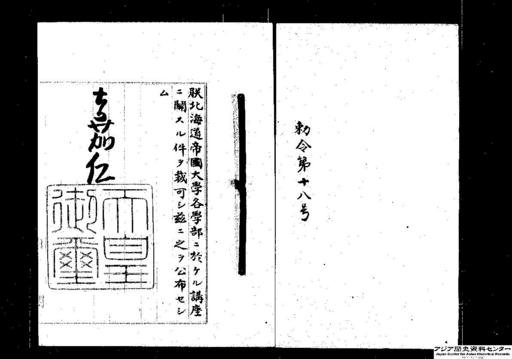 勅令第十八号
朕北海道帝國大學各學部ニ於ケル講座
ニ關スル件ヲ裁可シ茲ニ之ヲ公布セシ
ム
嘉仁
天皇
御璽
アジア歴史資料センター
Japan Center for Asian Historical Records